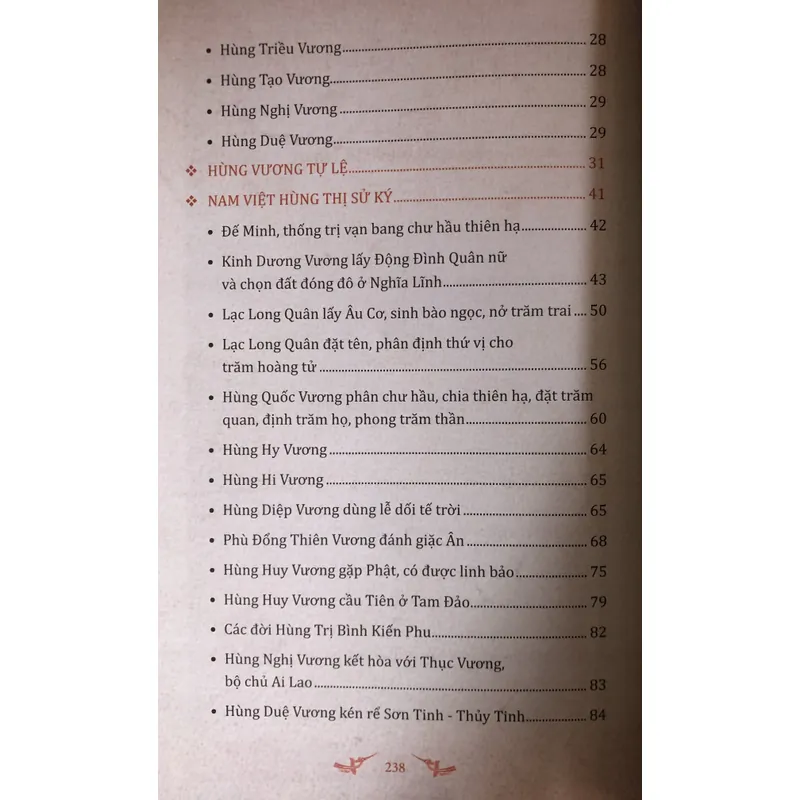 • Hùng Triều Vương........................................................ 28
• Hùng Tạo Vương........................................................ 28
• Hùng Nghị Vương ........................................................ 29
• Hùng Duệ Vương........................................................ 29
❖ HÙNG VƯƠNG TỰ LỆ........................................................ 31
❖ NAM VIỆT HÙNG THỊ SỬ KÝ........................................................ 41
• Đế Minh, thống trị vạn bang chư hầu thiên hạ.................... 42
• Kinh Dương Vương lấy Động Đình Quân nữ
và chọn đất đóng đô ở Nghĩa Lĩnh.................................... 43
• Lạc Long Quân lấy Âu Cơ, sinh bào ngọc, nở trăm trai .... 50
• Lạc Long Quân đặt tên, phân định thứ vị cho
trăm hoàng tử ........................................................ 56
• Hùng Quốc Vương phân chư hầu, chia thiên hạ, đặt trăm
quan, định trăm họ, phong trăm thần.............................. 60
• Hùng Hy Vương ........................................................ 64
• Hùng Hi Vương ........................................................ 65
• Hùng Diệp Vương dùng lễ dối tế trời ................................ 65
• Phù Đổng Thiên Vương đánh giặc Ân ................................ 68
• Hùng Huy Vương gặp Phật, có được linh bảo.................... 75
• Hùng Huy Vương cầu Tiên ở Tam Đảo................................ 79
• Các đời Hùng Trị Bình Kiến Phu........................................ 82
• Hùng Nghị Vương kết hòa với Thục Vương,
bộ chủ Ai Lao ........................................................ 83
• Hùng Duệ Vương kén rể Sơn Tinh - Thủy Tinh.................... 84
238